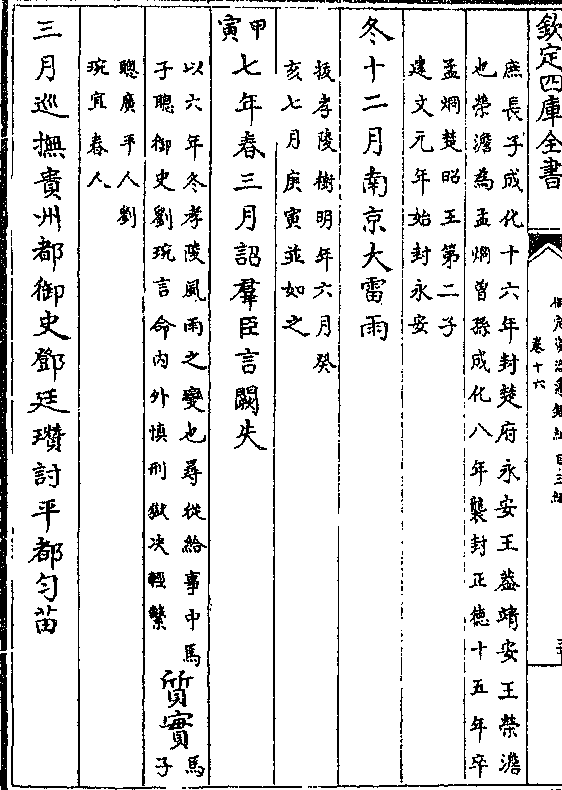 欽定四庫全書
卷十六
庶長子成化十六年封楚府永安王葢靖安王榮澹
也榮澹為孟炯曾孫成化八年襲封正德十五年卒
孟炯楚昭王第二子
建文元年始封永安
冬十二月南京大雷雨
拔孝陵樹明年六月癸
亥七月庚寅並如之
甲寅
七年春三月詔羣臣言闕失
以六年冬孝陵風雨之變也尋從給事中馬
子聰御史劉琬言命內外慎刑獄决輕繫
質實
馬子
聰廣平人劉
琬宜春人
三月巡撫貴州都御史鄧廷瓚討平都勻苗